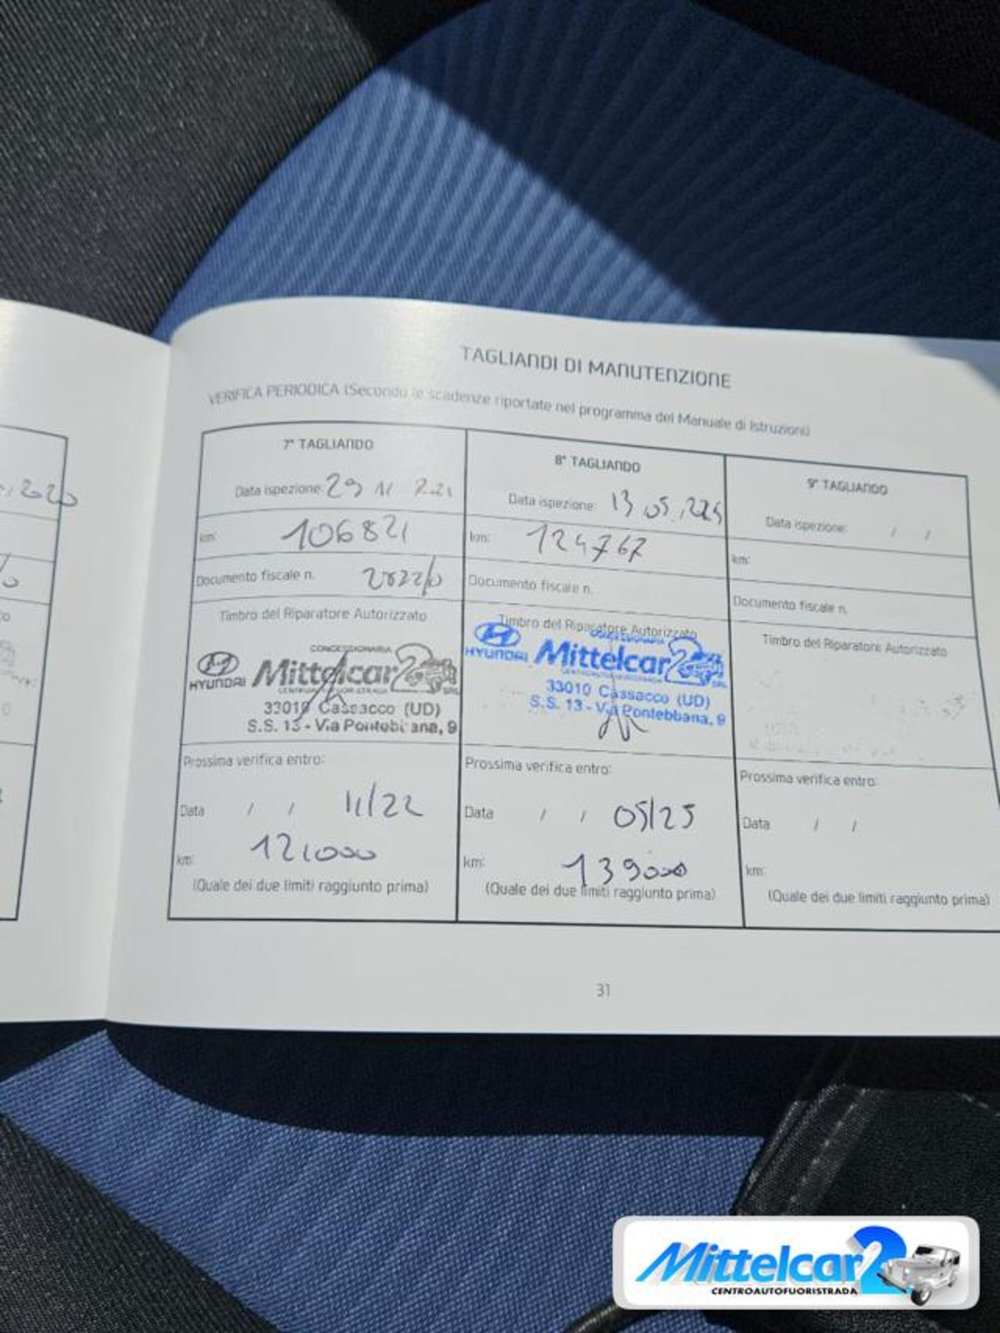 TAGLIANDI DI MANUTENZIONE
VERIFICA PERIODICA (Secondo le scadenze riportate nel programma del Manuale di Istruzioni)
7° TAGLIANDO
Data ispezione: 29 11
km: 106821
Documento fiscale n.
Timbro del Riparatore Autorizzato
CONCESSIONARIA
HYUNDAI Mittelcar2 SRL
CENTROAUTOFUORISTRADA
33010 Cassacco (UD)
S.S. 13 - Via Pontebbana, 9
Prossima verifica entro:
Data / / 11/22
km: 121000
(Quale dei due limiti raggiunto prima)
8° TAGLIANDO
Data ispezione: 13.05.
km: 124767
Documento fiscale n.
Timbro del Riparatore Autorizzato
CONCESSIONARIA
HYUNDAI Mittelcar2 SRL
CENTROAUTOFUORISTRADA
33010 Cassacco (UD)
S.S. 13 - Via Pontebbana, 9
Prossima verifica entro:
Data / / 05/25
km: 139000
(Quale dei due limiti raggiunto prima)
9° TAGLIANDO
Data ispezione: / /
km:
Documento fiscale n.
Timbro del Riparatore Autorizzato
Prossima verifica entro:
Data / /
km:
(Quale dei due limiti raggiunto prima)
31
Mittelcar2
CENTROAUTOFUORISTRADA